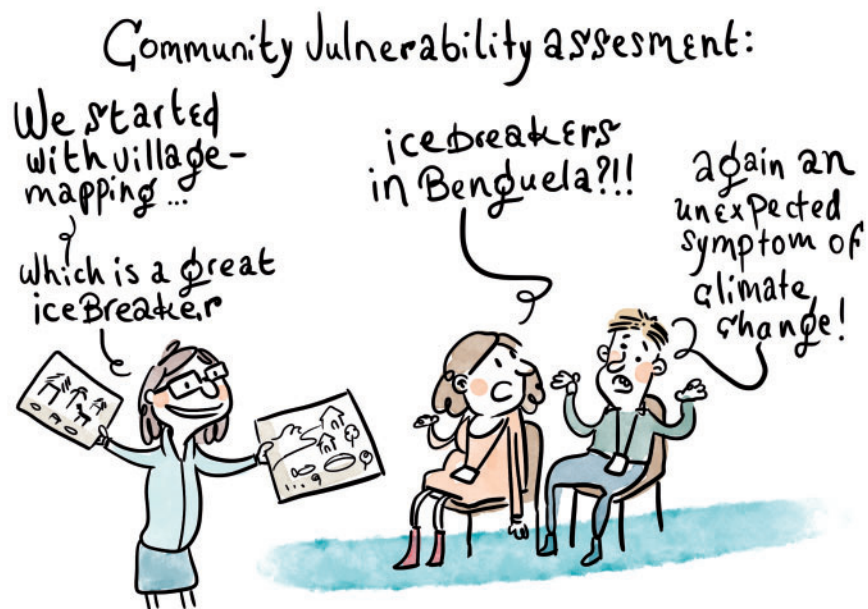 Community Vulnerability assesment:
We started
with village-
mapping ...
which is a great
iceBreaker
iceBreakers
in Benguela?!!!
again an
unexpected
symptom of
climate
change!